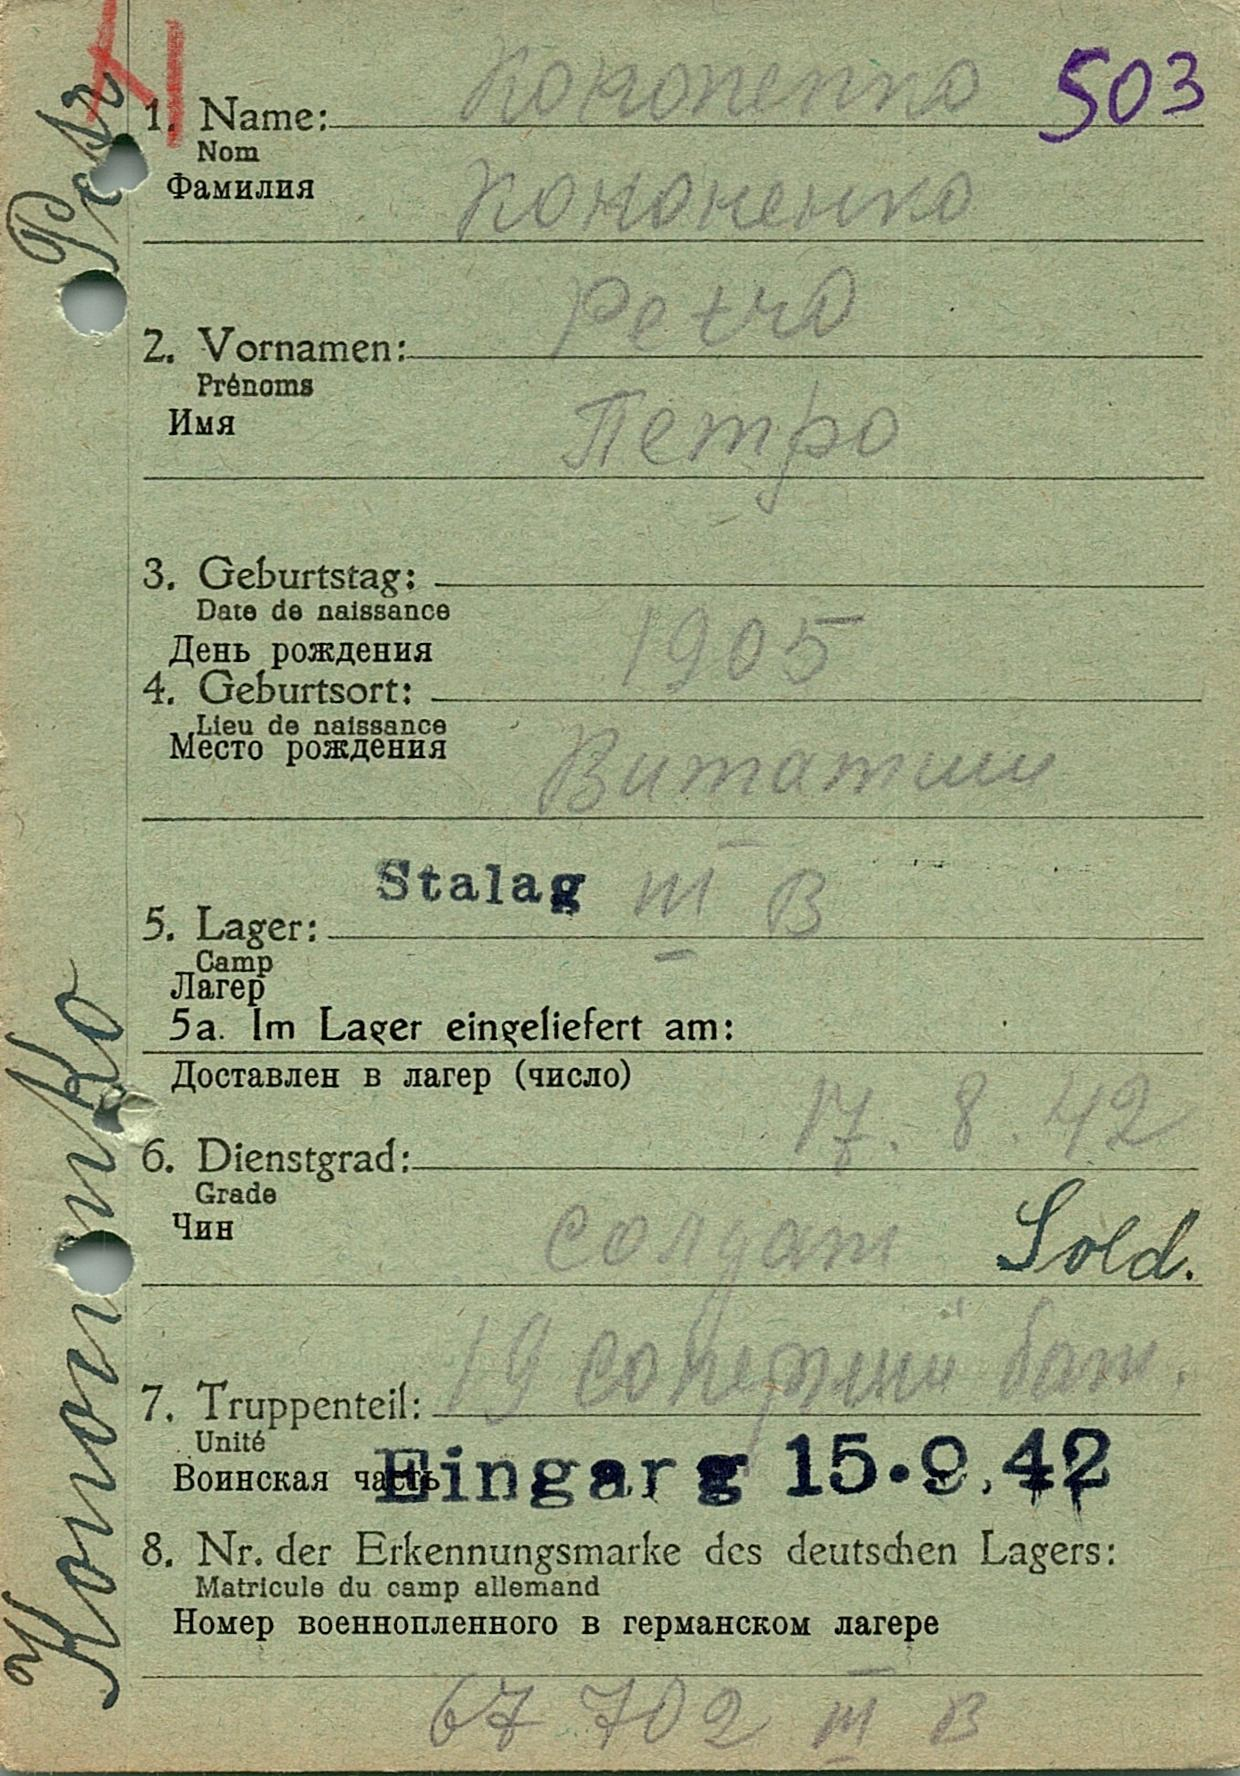 Petr
Kononenko
503
Кononenko
1. Name:
Nom
Фамилия
Кононенко
Petro
2. Vornamen:
Prénoms
Имя
Петро
3. Geburtstag:
Date de naissance
День рождения
1905
4. Geburtsort:
Lieu de naissance
Место рождения
Stalag III B
5. Lager:
Camp
Лагер
5a. Im Lager eingeliefert am:
Доставлен в лагер (число)
17. 8. 42
6. Dienstgrad:
Grade
Чин
солдат Sold.
19 бат.
7. Truppenteil:
Unité
Воинская часть
Eingang 15.9.42
8. Nr. der Erkennungsmarke des deutschen Lagers:
Matricule du camp allemand
Номер военнопленного в германском лагере
67 702 III B